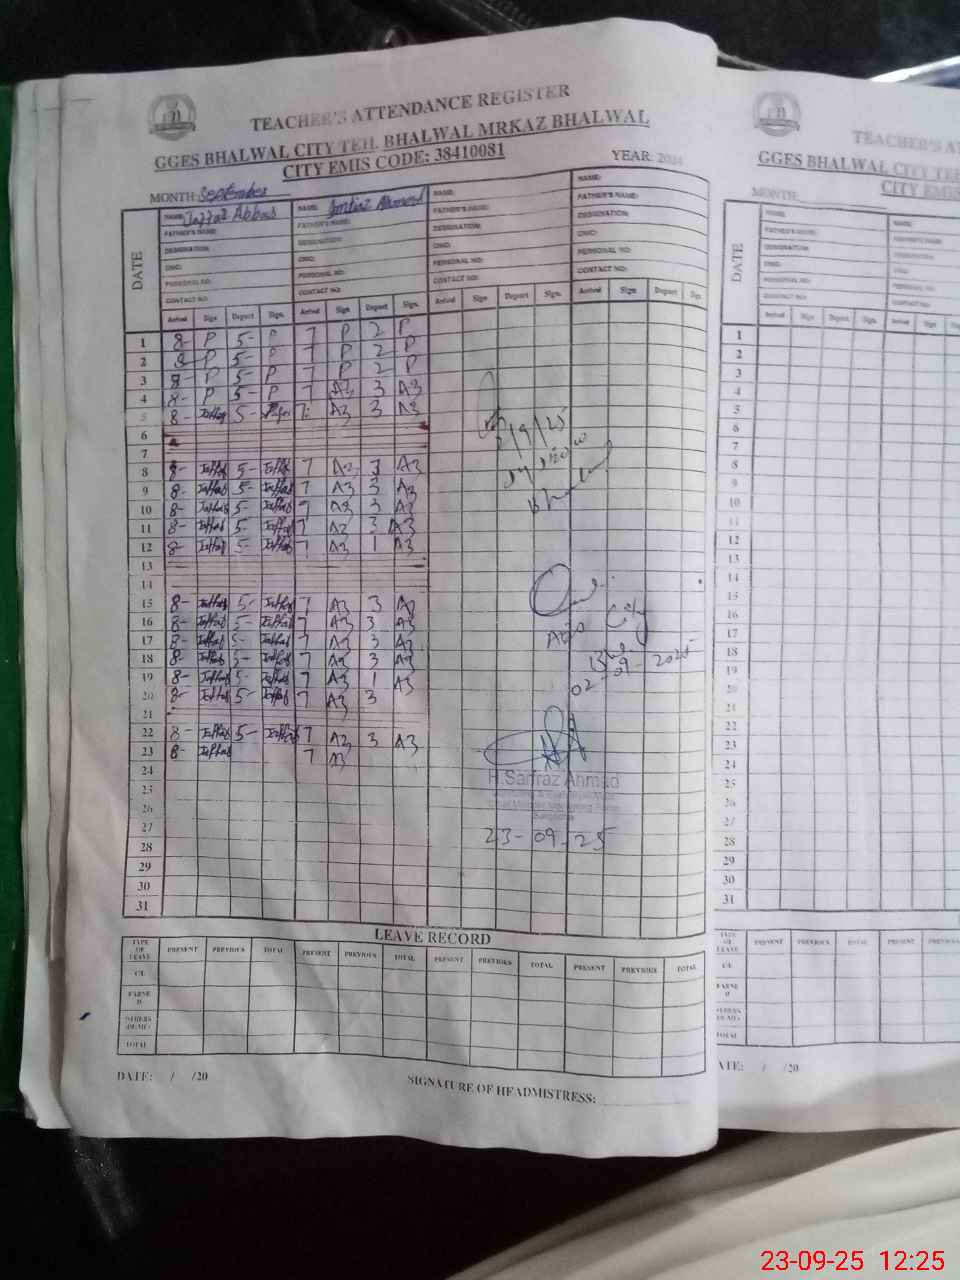 TEACHER'S ATTENDANCE REGISTER
GGES BHALWAL CITY TEH. BHALWAL MRKAZ BHALWAL
CITY EMIS CODE: 38410081
YEAR: 2024
MONTH: September
DATE
NAME: Jaffar Abbas
NAME: Imtiaz Ahmed
NAME:
NAME:
FATHER'S NAME: FATHER'S NAME: FATHER'S NAME: FATHER'S NAME:
DESIGNATION: DESIGNATION: DESIGNATION: DESIGNATION:
CNIC: CNIC: CNIC: CNIC:
PERSONAL NO: PERSONAL NO: PERSONAL NO: PERSONAL NO:
CONTACT NO: CONTACT NO: CONTACT NO: CONTACT NO:
Arrival Sign Depart Sign. Arrival Sign Depart Sign. Arrival Sign Depart Sign. Arrival Sign Depart Sign
1 8- P 5- P 7 P 2 P
2 8- P 5- P 7 P 2 P
3 8- P 5- P 7 P 2 P
4 8- P 5- P 7 A3 3 A3
5 8- Jaffar 5- 7 A3 3 A3
6
7
8 8- Jaffar 5- Jaffar 7 A3 3 A3
9 8- Jaffar 5- Jaffar 7 A3 3 A3
10 8- Jaffar 5- Jaffar 7 A3 3 A3
11 8- Jaffar 5- Jaffar 7 A3 3 A3
12 8- Jaffar 5- Jaffar 7 A3 1 A3
13
14
15 8- Jaffar 5- Jaffar 7 A3 3 A3
16 8- Jaffar 5- Jaffar 7 A3 3 A3
17 8- Jaffar 5- Jaffar 7 A3 3 A3
18 8- Jaffar 5- Jaffar 7 A3 3 A3
19 8- Jaffar 5- Jaffar 7 A3 1 A3
20 8- Jaffar 5- Jaffar 7 A3 3
21
22 8- Jaffar 5- Jaffar 7 A3 3 A3
23 8- Jaffar 7 A3
24
25
26
27
28
29
30
31
/9/25
City
02-09-2025
H.Sarfraz Ahmad
23-09-25
LEAVE RECORD
TYPE OF LEAVE PRESENT PREVIOUS TOTAL PRESENT PREVIOUS TOTAL PRESENT PREVIOUS TOTAL PRESENT PREVIOUS TOTAL
C/L
EARNED
OTHERS
TOTAL
DATE: / /20
SIGNATURE OF HEADMISTRESS:
TEACHER'S
GGES BHALWAL CITY TEH
CITY EMIS
MONTH:
DATE
NAME: NAME:
FATHER'S NAME: FATHER'S NAME:
DESIGNATION: DESIGNATION:
CNIC: CNIC:
PERSONAL NO: PERSONAL NO:
CONTACT NO: CONTACT NO:
Arrival Sign Depart Sign. Arrival Sign
1
2
3
4
5
6
7
8
9
10
11
12
13
14
15
16
17
18
19
20
21
22
23
24
25
26
27
28
29
30
31
TYPE OF LEAVE PRESENT PREVIOUS TOTAL PRESENT PREVIOUS
C/L
EARNED
OTHERS
TOTAL
DATE: / /20
23-09-25 12:25